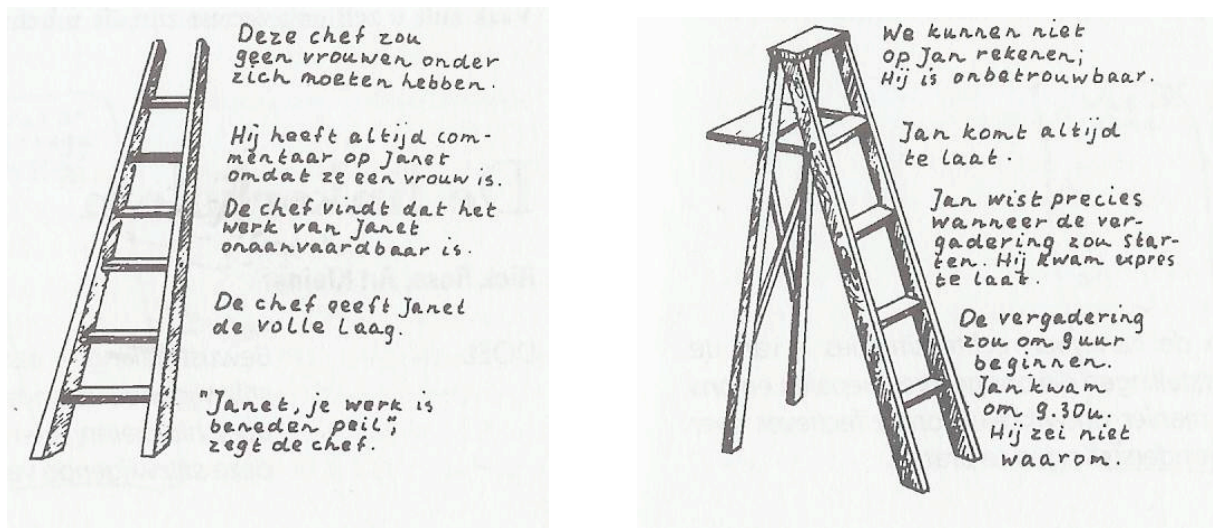 Deze chef zou
geen vrouwen onder
zich moeten hebben.
Hij heeft altijd com-
mentaar op Janet
omdat ze een vrouw is.
De chef vindt dat het
werk van Janet
onaanvaardbaar is.
De chef geeft Janet
de volle laag.
"Janet, je werk is
beneden peil",
zegt de chef.
We kunnen niet
op Jan rekenen;
Hij is onbetrouwbaar.
Jan komt altijd
te laat.
Jan wist precies
wanneer de ver-
gadering zou star-
ten. Hij kwam expres
te laat.
De vergadering
zou om 9 uur
beginnen.
Jan kwam
om 9.30u.
Hij zei niet
waarom.